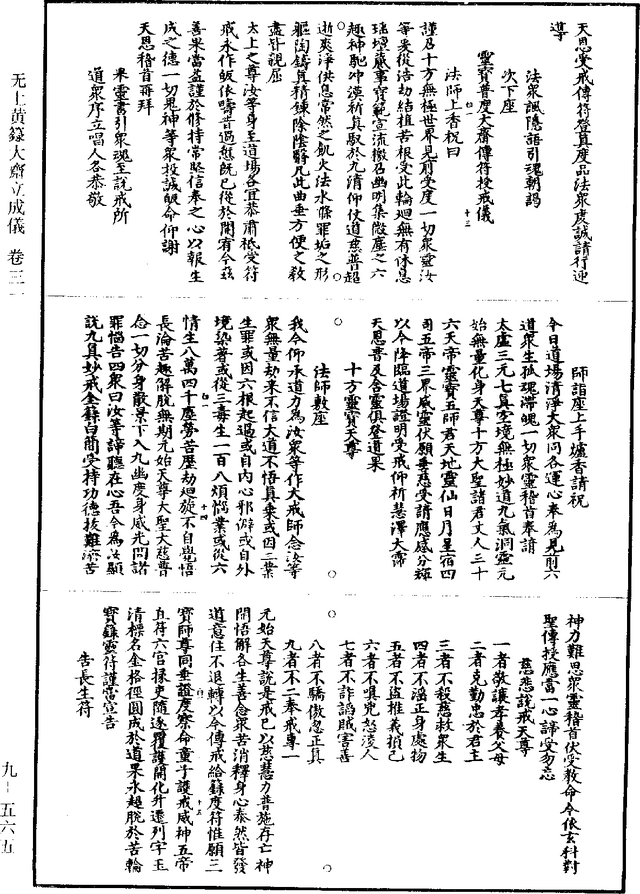 天恩受戒傳符登真度品法眾虔誠請行迎
導
法眾諷隱語引魂朝謁
次下座
靈寶普度大齋傳符授戒儀
法師上香祝曰
謹召十方無極世界見前受度一切眾靈汝
等爰從浩劫結植苦根受此輪迴無有休息
瑤壇蕆事寶範宣流徵召幽明集微塵之六
趣神馳沖漠祈真馭於九清仰仗道慈普超
逝爽淨供息常然之飢火法水滌罪垢之形
軀陶鑄真精鍊除陰翳凡此曲垂方便之教
盡皆說屈
太上之尊汝等身至道場各宜恭肅祗受符
戒永作皈依疇昔過愆既已從於開宥今茲
善果當益謹於修持常堅信奉之心以報生
成之德一切鬼神等眾投誠皈命仰謝
天恩稽首再拜
果靈書引眾魂至說戒所
道眾序立唱人各恭敬
師詣座上手爐香請祝
今日道場清淨大眾同各運心奉為見前六
道眾生孤魂滯魄一切眾靈稽首奉請
太虛三元七真空境無極妙道九氣洞靈元
始無量化身天尊十方大聖諸君丈人三十
六天帝靈寶五師君天地靈仙日月星宿四
司五帝三界威靈伏願垂慈受請應感分輝
以今降臨道場證明受戒仰祈慧澤大霈
天恩書及含靈俱登道果
十方靈寶天尊
法師敷座
我今仰承道力為汝眾等作大戒師念汝等
眾無量劫來不信大道不悟真乘或因三業
生罪或因六根起過或自內心邪僻或自外
境染著或從三毒生一百八煩惱業或從六
情生八萬四千塵勞苦歷劫迴旋不自覺悟
長淪苦趣解脫無期元始天尊大聖大慈普
念一切分身散景下入九幽度身威光問諸
罪惱告四眾曰汝等諦聽在心吾今為汝顯
說九真妙戒金籙白簡受持功德拔難濟苦
神力難思眾靈稽首伏受教命今依玄科對
聖傳授應當一心諦受勿忘
慈悲說戒天尊
一者敬讓孝養父母
二者克勤忠於君王
三者不殺慈救眾生
四者不淫正身處物
五者不盜推義損己
六者不嗔兇怒凌人
七者不詐諂賊害善
八者不驕傲忽正真
九者不二奉戒專一
元始天尊說是戒已以慈慧力普施存亡神
開悟解各生善念眾苦消釋身心泰然皆發
道意住不退轉以今傳戒給籙度符惟願三
寶師尊同垂證度察命童子護戒威神五帝
直符六宮掾吏隨逐覆護開化升遷列字玉
清標名金格徑圓成於道果永超脫於苦輪
寶籙靈符謹當宣告
告長生符
无上黃籙大齋立成儀 卷三一
九－五六五